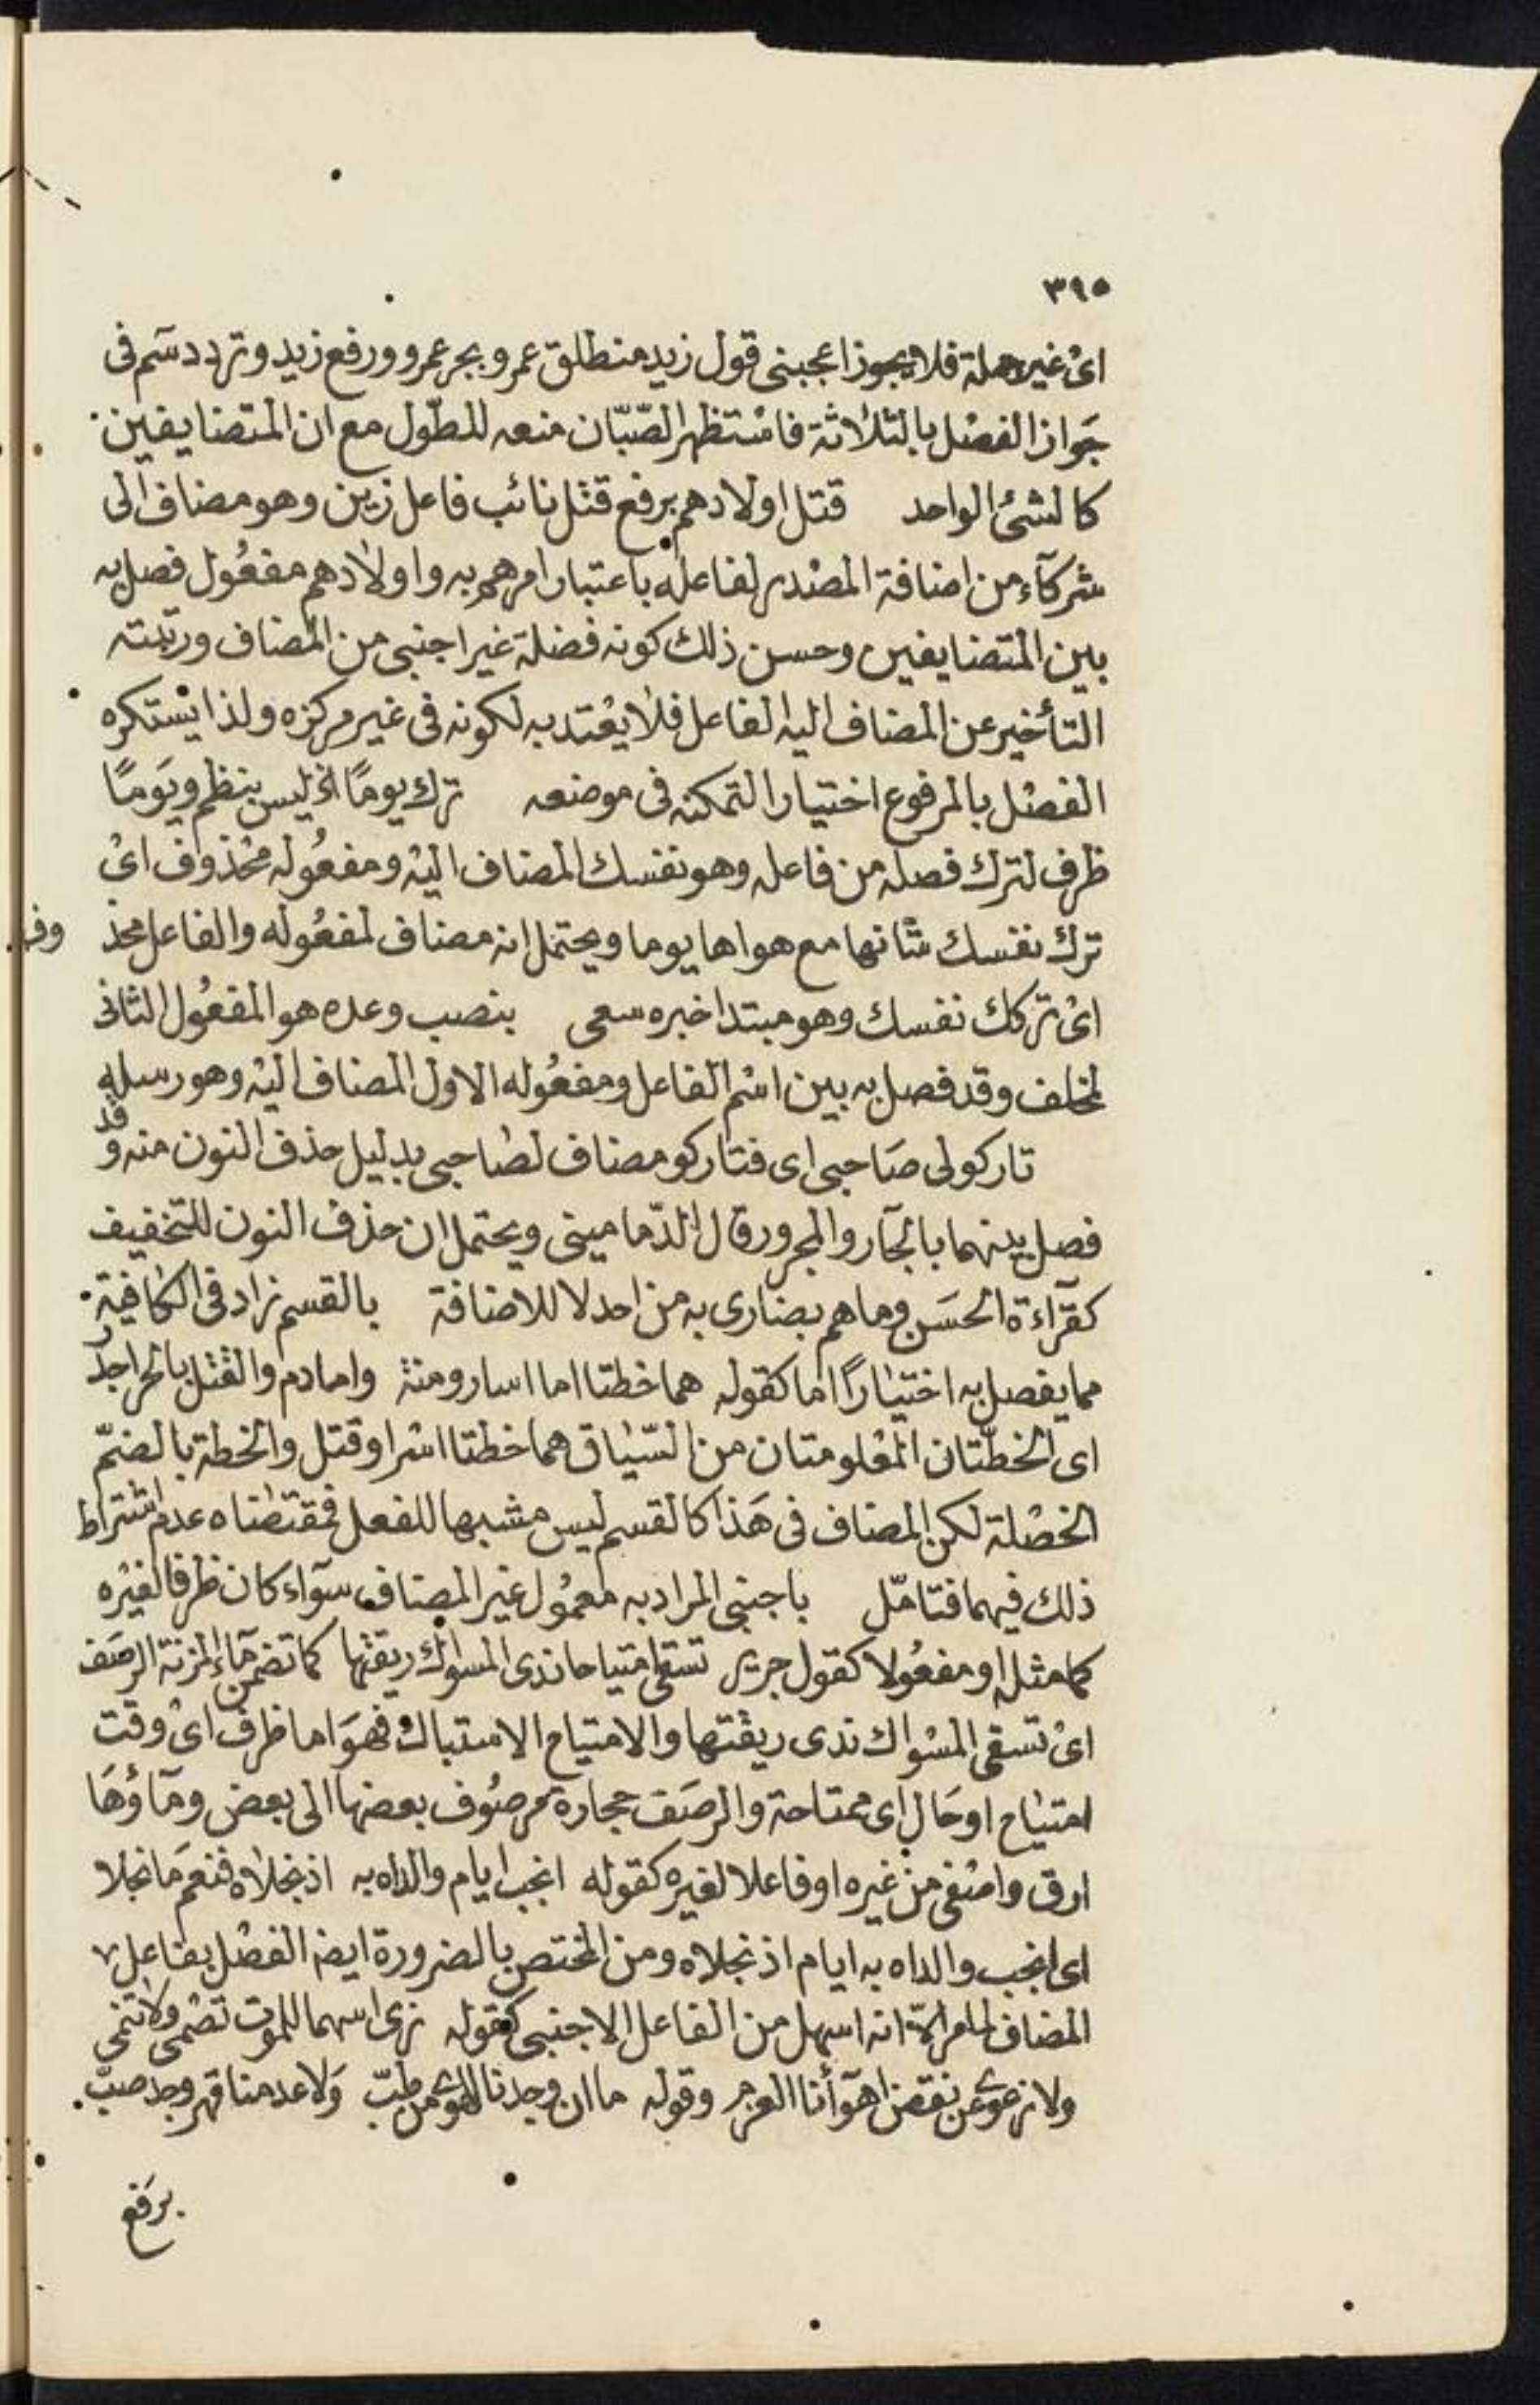 ٣٩٥
اى غير جملة فلا يجوز اعجبنى قول زيد منطلق عمرو بجر عمرو ورفع زيد وتردد سم فى
جواز الفصل بالثلاثة فاستظهر الصّبّان منعه للطّول مع ان المتضايفين
كالشئ الواحد قتل اولادهم برفع قتل نائب فاعل زين وهو مضاف الى
شركآء من اضافة المصدر لفاعله باعتبار امرهم به واولادهم مفعول فصل به
بين المتضايفين وحسن ذلك كونه فضلة غير اجنبى من المضاف ورتبته
التأخير عن المضاف اليه الفاعل فلا يعتد به لكونه فى غير مركزه ولذا يستكره
الفصل بالمرفوع اختيارا لتمكنه فى موضعه ترك يومًا اذ ليس بنظم ويومًا
ظرف لترك فصله من فاعله وهو نفسك المضاف اليه ومفعوله محذوف اى
ترك نفسك شانها مع هواها يوما ويحتمل انه مضاف لمفعوله والفاعل محذ وف
اى تركك نفسك وهو مبتدا خبره سعى بنصب وعده هو المفعول الثانى
لمخلف وقد فصل به بين اسم الفاعل ومفعوله الاول المضاف اليه وهو رسله
تاركولى صاحبى اى فتاركو مضاف لصاحبى بدليل حذف النون منه وقد
فصل بينهما بالجآر والمجرور قال الدّمامينى ويحتمل ان حذف النون للتخفيف
كقرآءة الحسَن وما هم بضارى به من احد لا للاضافة بالقسم زاد فى الكافية
مما يفصل به اختيارًا اما كقوله هما خطتا اما اسار ومنة واما دم والقتل بالحر اجدر
اى الخطّتان المعلومتان من السّياق هما خطتا اسر او قتل والخطة بالضمّ
الخصلة لكن المضاف فى هَذا كالقسم ليس مشبها للفعل فمقتضاه عدم اشتراط
ذلك فيهما فتامّل باجنبى المراد به معمول غير المضاف سوآء كان ظرفا لغيره
كما مثله او مفعولا كقول جرير تسقى امتياحا ندى المسواك ريقتها كما تضمن مآء المزنة الرصَف
اى تسقى المسواك ندى ريقتها والامتياح الاستياك فهوَ اما ظرف اى وقت
امتياح او حَال اى ممتاحة والرصَف حجارة مرصوف بعضها الى بعض ومآؤهَا
ارق واصفى من غيره او فاعلا لغيره كقوله انجب ايام والداه به اذ نجلاه فنعم مَا نجلا
اى انجب والداه به ايام اذ نجلاه ومن المختص بالضرورة ايضا الفصل بفاعل
المضاف لما مر الا انه اسهل من الفاعل الاجنبى كقوله نرى اسهما للموت تصمى ولا تنمى
ولا نرعوى عن نقض اهوآأنا العزم وقوله ما ان وجدنا للهوى من طبّ وَلا عدمنا قهر وجد صبّ
برفع